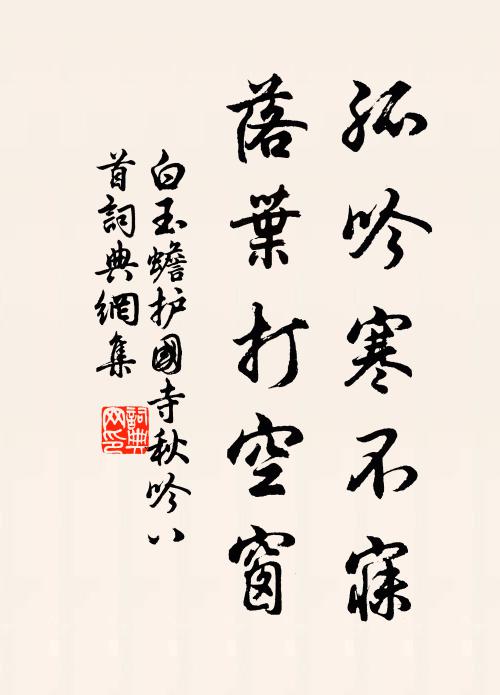 孤吟寒不寐
落葉打空窗
白玉蟾护國寺秋吟八
首詞典網集
詞典
网印